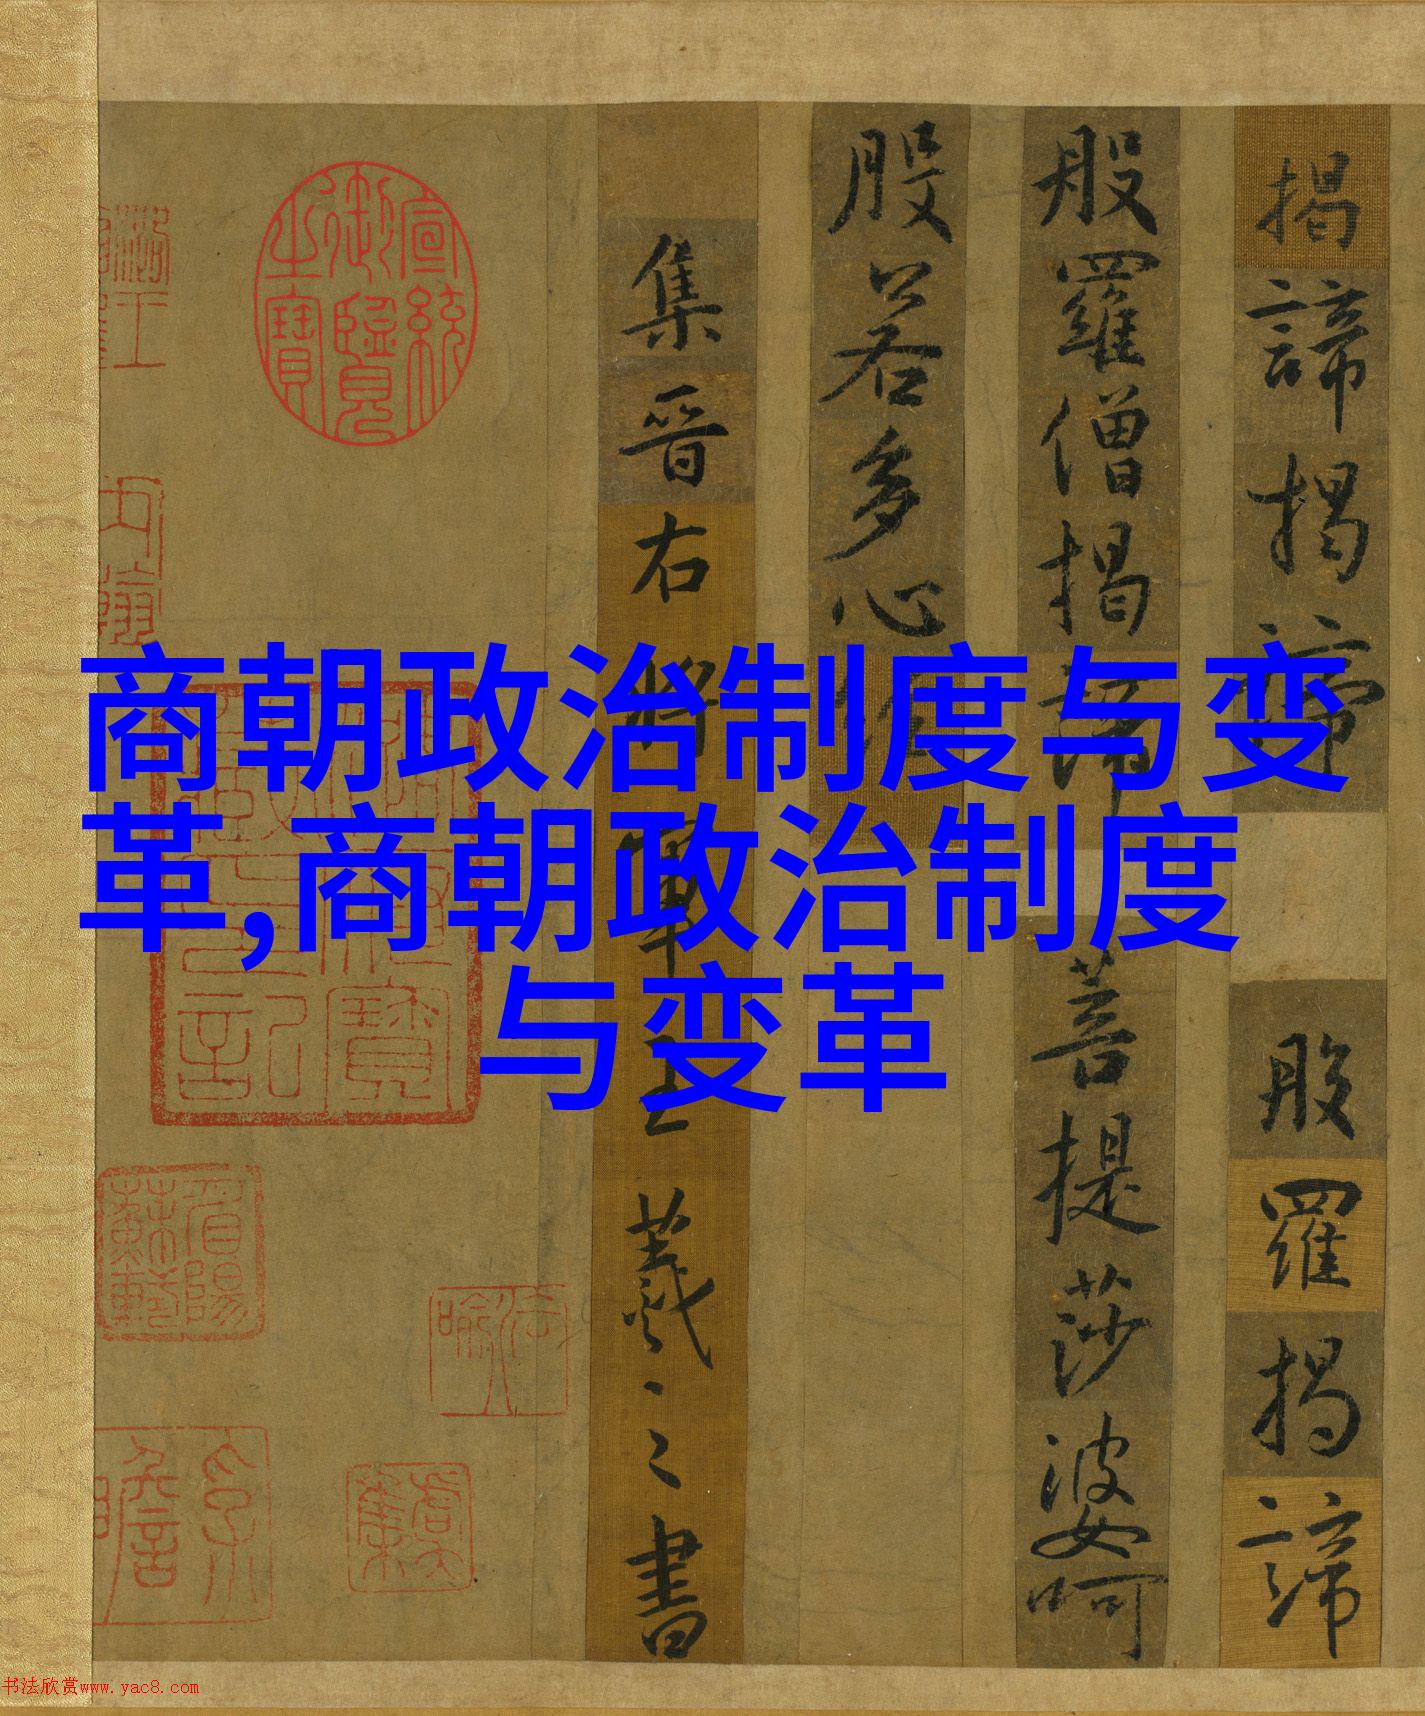 商朝政治制度与变
革,商朝政治制度
与变革
揭諦揭諦
般羅揭諦
般羅僧揭諦
菩提莎婆呵
般若多心
集晉右將軍王羲之書
宣統御覽之寶
书法欣赏www.yac8.com